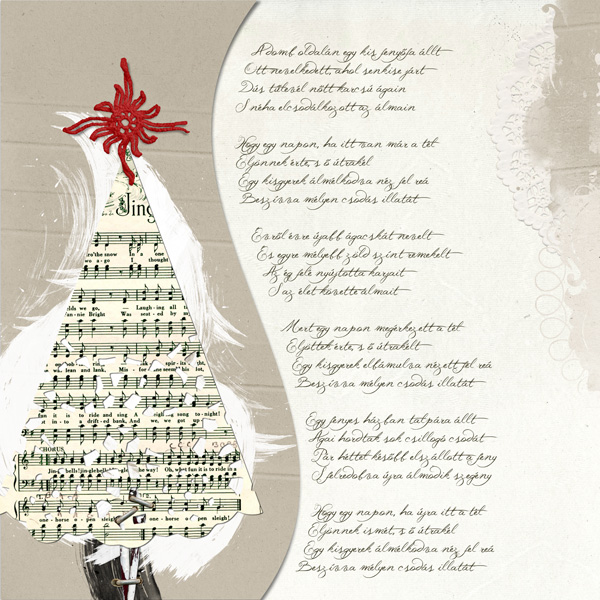 A domb oldalán egy kis fenyőfa állt
Ott nevelkedett, ahol senki se járt
Dús tűlevél nőtt karcsú ágain
S néha elcsodálkozott az álmain
Hogy egy napon, ha itt van már a tél
Eljönnek érte, s ő útra kél
Egy kisgyerek álmélkodva néz fel reá
Beszívva mélyen csodás illatát
Évről évre újabb ágacskát nevelt
És egyre mélyebb zöld színt remekelt
Az ég felé nyújtotta karjait
S az élet követte álmait
Mert egy napon megérkezett a tél
Eljöttek érte, s ő útra kélt
Egy kisgyerek elámulva nézett fel reá
Beszívva mélyen csodás illatát
Egy fényes házban talpára állt
Ágai hordtak sok csillogó csodát
Pár héttel később elszállott a fény
S félredobva újra álmodik szegény
Hogy egy napon, ha újra itt a tél
Eljönnek ismét, s ő útra kél
Egy kisgyerek álmélkodva néz fel reá
Beszívva mélyen csodás illatát
Jing
o'er the snow In a one
wo a go I thought
lds we go, Laugh-ing all t
an-nie Bright Was seat-ed by m
spir-its
lean and lank, Mis for
is to ride and sing A sleigh-ing song to-night!
ot in-to a drift-ed bank, And we, we got up
CHORUS
Jin bells! jin-gle bells! way! Oh, what fun it is to ride in a
one-horse o-pen sleigh! one-horse o-pen sleigh!